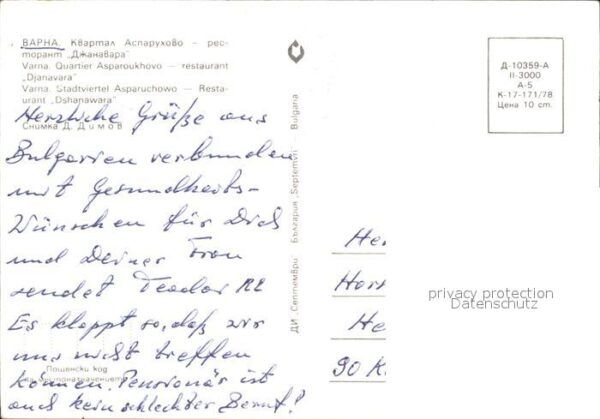 ВАРНА. Квартал Аспарухово – рес-
торант „Джанавара"
Varna. Quartier Asparoukhovo – restaurant
"Djanavara"
Varna. Stadtviertel Asparuchowo – Resta-
urant „Dshanawara"
Снимка Д. Димов
Herzliche Grüße aus
Bulgarien verbunden
mit Gesundheits-
Wünschen für Dich
und Deiner Frau
sendet Teodor
Es klappt so, daß wir
uns nicht treffen
können. Pensionär ist
auch kein schlechter Beruf!
Пощенски код
на местоназначението
ДИ „Септември" България „Septemvri" Bulgaria
Д-10359-А
II-3000
А-5
К-17-171/78
Цена 10 ст.
He
Hor
He
90 K
privacy protection
Datenschutz